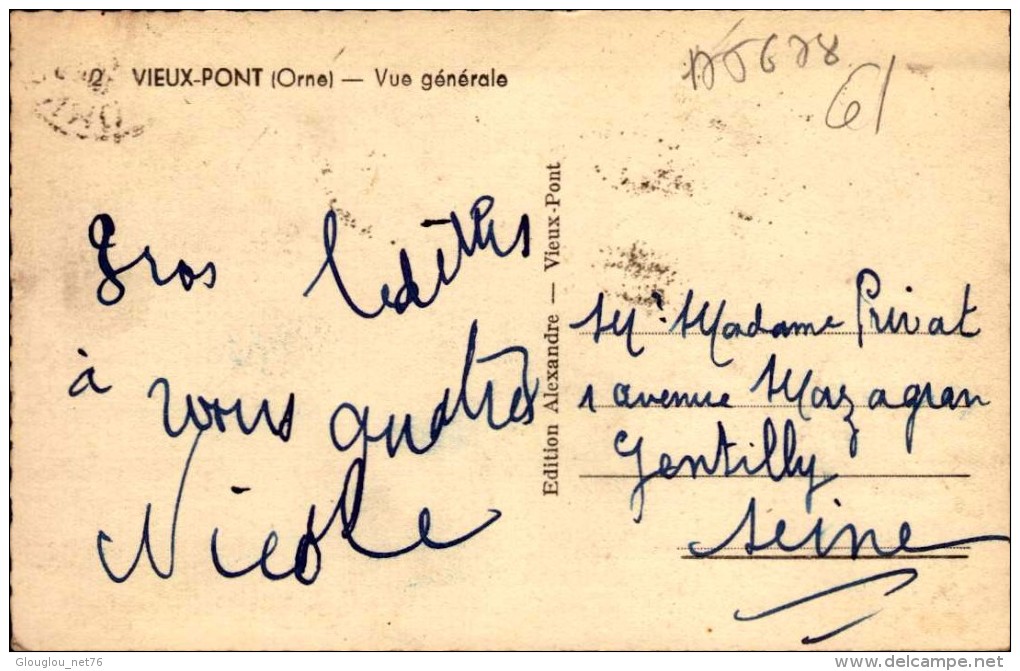 2 VIEUX-PONT (Orne) — Vue générale
61
Gros
à vous quatres
Nicole
Edition Alexandre — Vieux-Pont
Mr. Madame Privat
1 avenue Mazagran
Gentilly
Seine
Glouglou_net76
delcampe.net